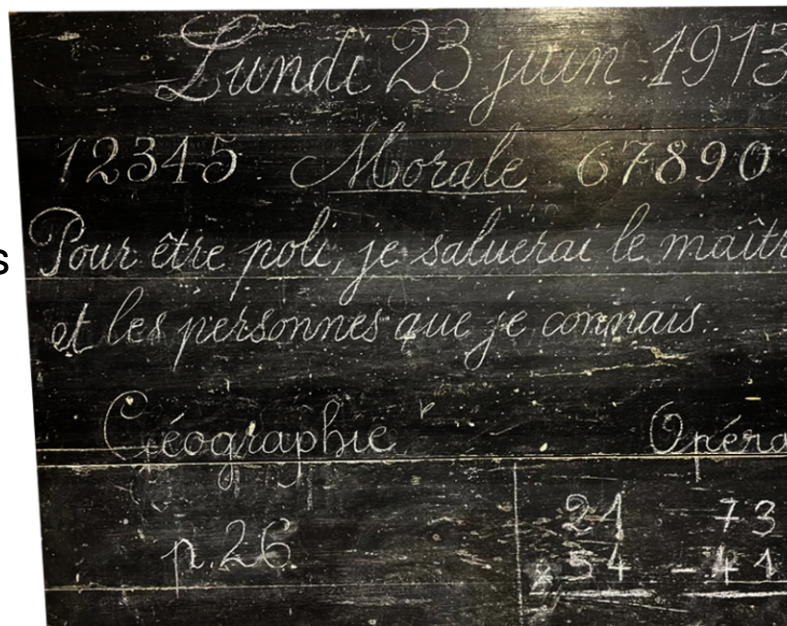 Lundi 23 juin 1913
12345 Morale 67890
s
Pour être poli, je saluerai le maîtr
et les personnes que je connais.
Géographie Opéra
p. 26
21 73
54 - 41